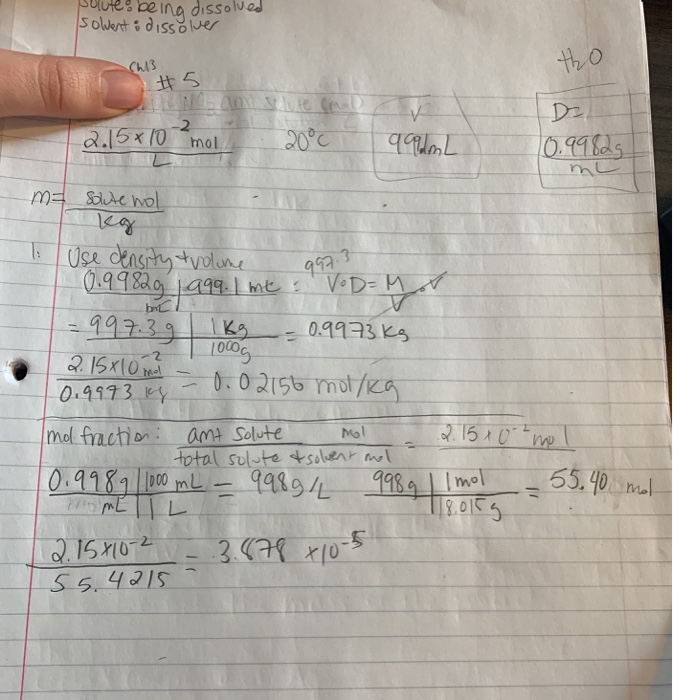 solute: being dissolved
solvent: dissolver
Ch13
#5
H2O
2.15x10^-2 mol / L 20°C V 999.1mL D= 0.9982g / mL
m= solute mol / kg
1: Use density + volume
0.9982g / mL | 999.1 mL = 997.3 V·D= M / V · V
= 997.3g | 1kg / 1000g = 0.9973 kg
2.15x10^-2 mol / 0.9973 kg = 0.02156 mol/kg
mol fraction: amt solute mol / total solute + solvent mol = 2.15x10^-2 mol
0.998g / mL | 1000 mL / 1 L = 998g/L 998g | 1 mol / 18.015g = 55.40 mol
2.15x10^-2 / 55.4215 = 3.879 x10^-5